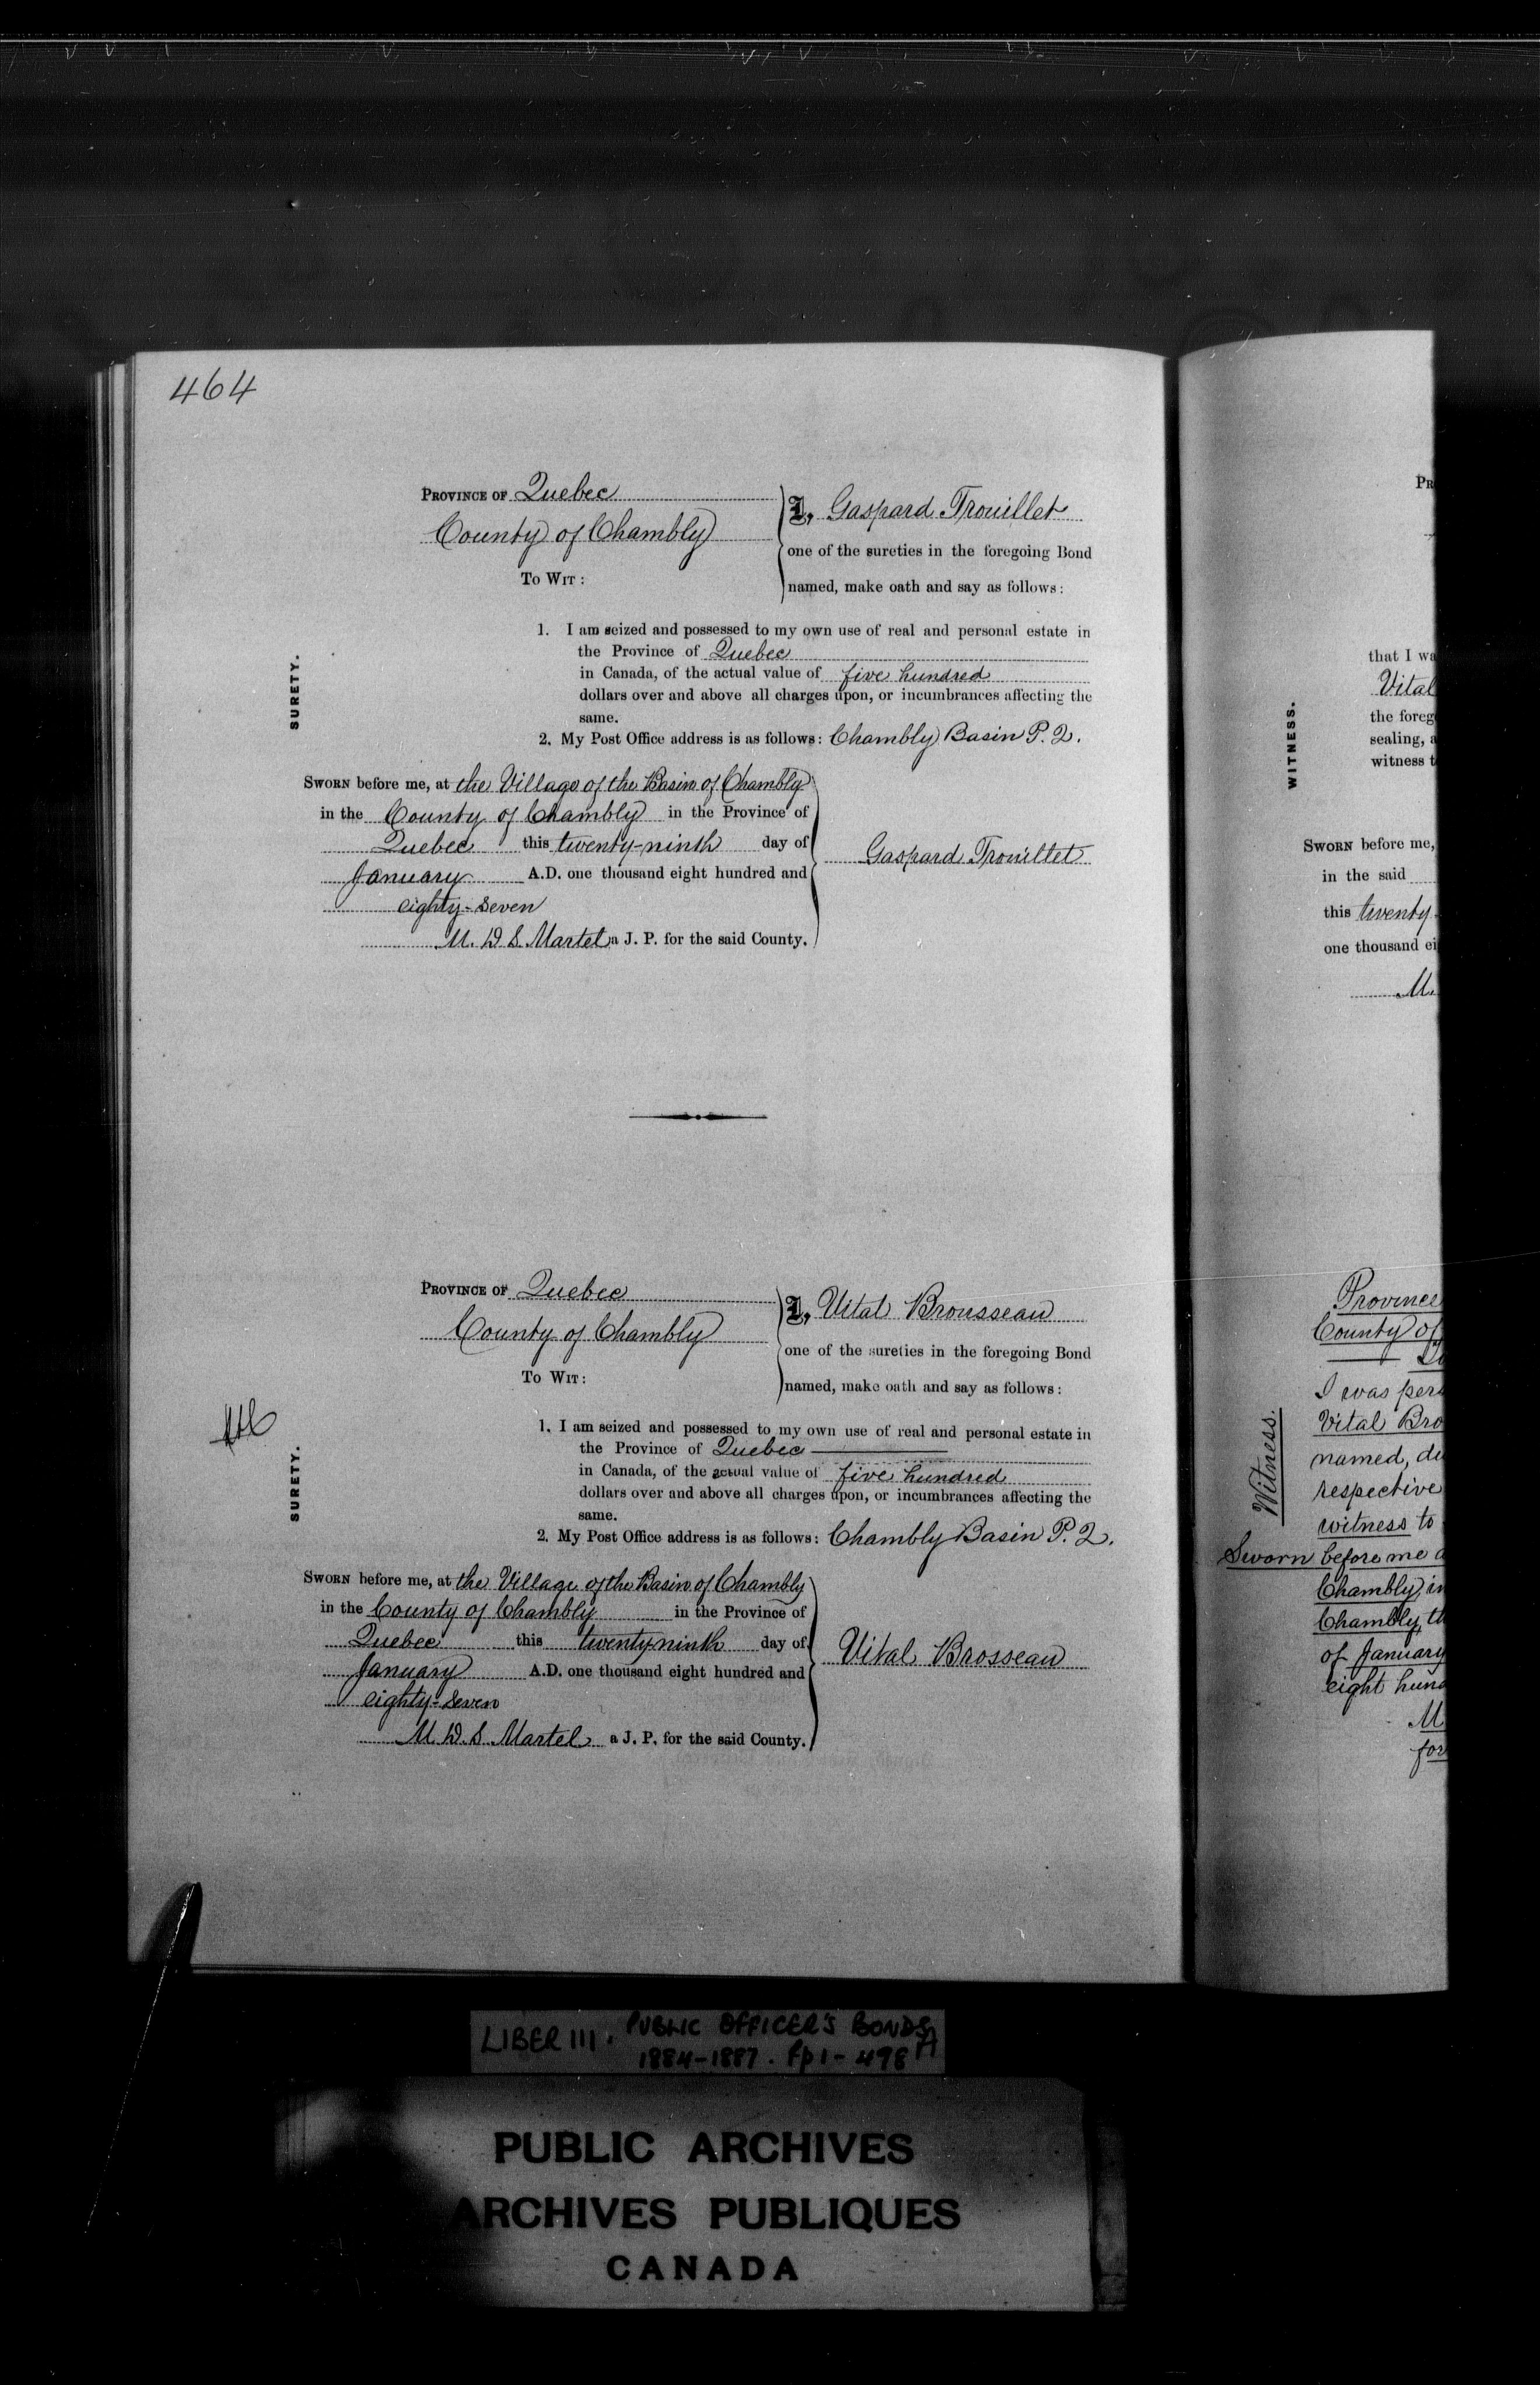 464
PROVINCE OF Quebec
County of Chambly
TO WIT:
I, Gaspard Trouillet
one of the sureties in the foregoing Bond
named, make oath and say as follows:
SURETY.
1. I am seized and possessed to my own use of real and personal estate in
the Province of Quebec
in Canada, of the actual value of five hundred
dollars over and above all charges upon, or incumbrances affecting the
same.
2. My Post Office address is as follows: Chambly Basin P. Q.
SWORN before me, at the Village of the Basin of Chambly
in the County of Chambly in the Province of
Quebec this twenty-ninth day of
January A.D. one thousand eight hundred and
eighty-seven
M. D S. Martel a J. P. for the said County.
Gaspard Trouillet
PROVINCE OF Quebec
County of Chambly
TO WIT:
I, Vital Brousseau
one of the sureties in the foregoing Bond
named, make oath and say as follows:
SURETY.
1. I am seized and possessed to my own use of real and personal estate in
the Province of Quebec
in Canada, of the actual value of five hundred
dollars over and above all charges upon, or incumbrances affecting the
same.
2. My Post Office address is as follows: Chambly Basin P. Q.
SWORN before me, at the Village of the Basin of Chambly
in the County of Chambly in the Province of
Quebec this twenty-ninth day of
January A.D. one thousand eight hundred and
eighty-seven
M. D. S. Martel a J. P. for the said County.
Vital Brosseau
PR
that I wa
Vital
the foreg
sealing, a
witness t
WITNESS.
SWORN before me,
in the said
this twenty-
one thousand ei
M.
Province
County of
I was pers
Vital Bro
named, du
respective
witness to
Witness.
Sworn before me a
Chambly in
Chambly, th
of January
eight hund
M
for
LIBER III. PUBLIC OFFICER'S BONDS
1884-1887. fp 1-498A
PUBLIC ARCHIVES
ARCHIVES PUBLIQUES
CANADA